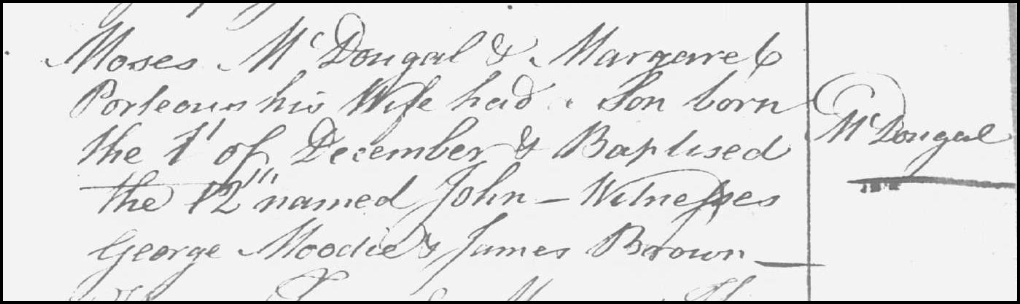 Moses McDougal & Margaret
Porteous his Wife had a Son born
the 1t of December & Baptised
the 12th named John - Witnesses
George Moodie & James Brown
McDougal